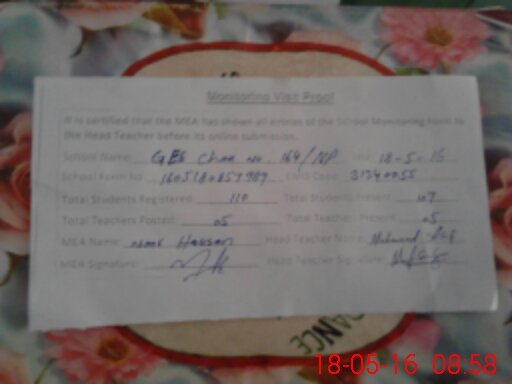 Monitoring Visit Proof
It is certified that the MEA has shown all entries of the School Monitoring Form to
the Head Teacher before its online submission.
School Name: Chak No. 164/NP Date 18-5-16
School Form No. EMIS Code: 31340055
Total Students Registered: 110 Total Students Present: 107
Total Teachers Posted: 05 Total Teachers Present: 05
MEA Name: Hassan Head Teacher Name:
MEA Signature: Head Teacher Signature:
DANCE
18-05-16 08:58